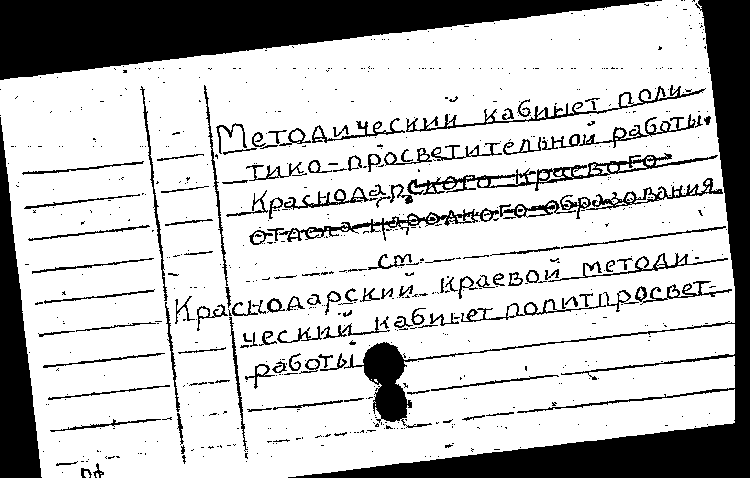 Методический кабинет поли-
тико-просветительной работы.
Краснодарского краевого
отдела народного образования
см.
Краснодарский краевой методи-
ческий кабинет политпросвет.
работы